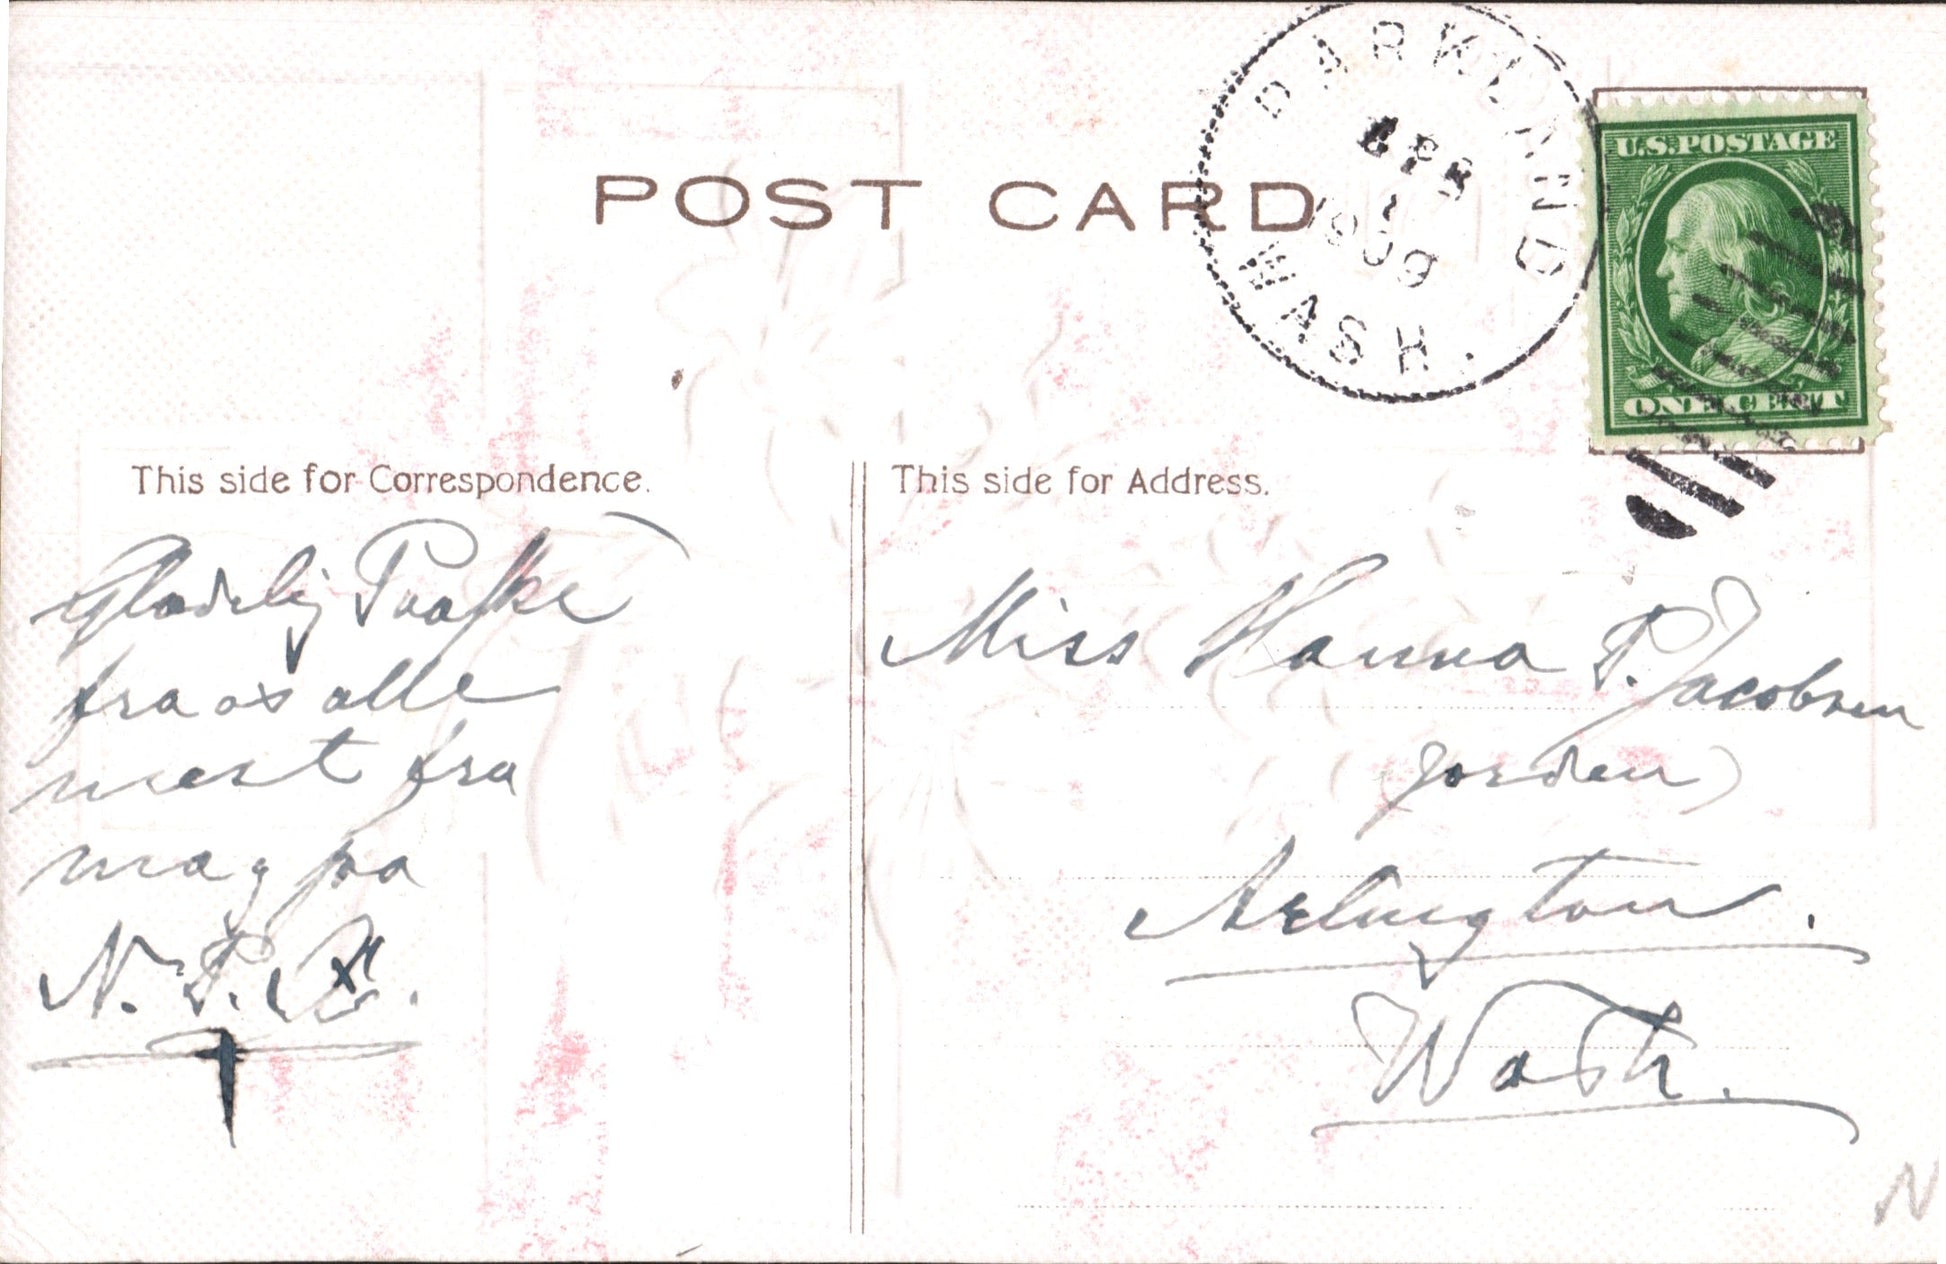 POST CARD
DARKLAND
APR
1
1909
WASH.
U.S. POSTAGE
ONE CENT
This side for Correspondence.
Gladelig Paaske
fra os alle
mest fra
maɡ paa
N. P.
This side for Address.
Miss Hanna P. Jacobsen
Jorden
Arlington.
Wash.
N